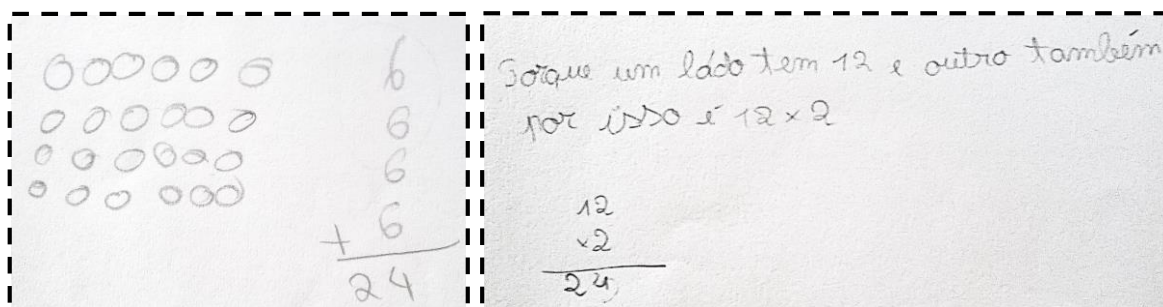 6
6
6
+ 6
24
Porque um ládo tem 12 e outro também
por isso é 12 x 2
12
x2
24